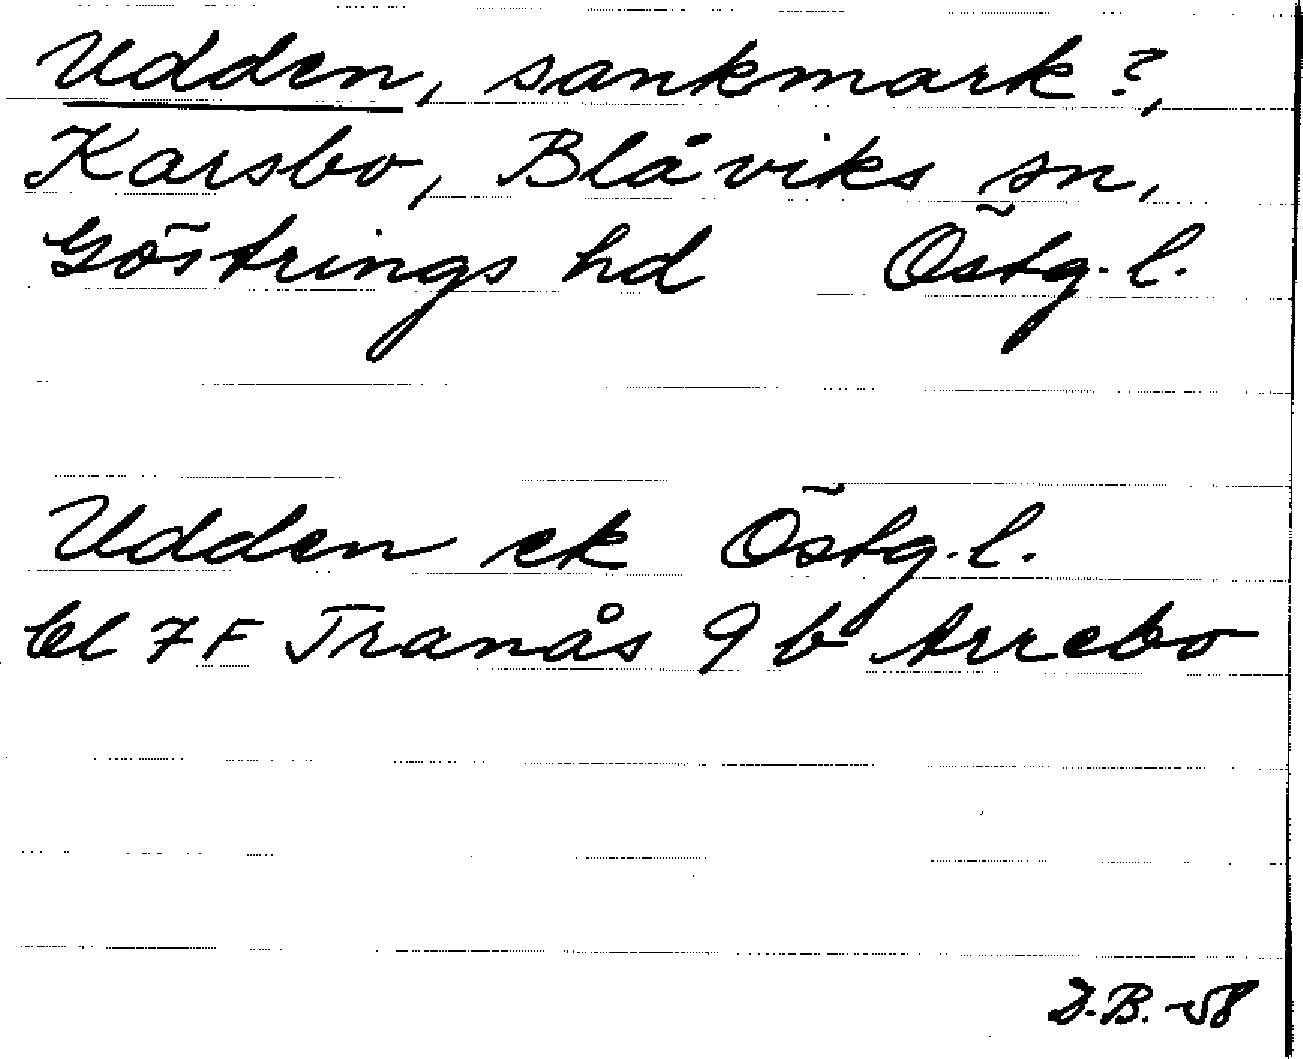 Udden, sankmark?,
Karsbo, Blåviks sn,
Göstrings hd Östg. l.
Udden ek Östg. l.
bl 7 F Tranås 9 b Arrebo
D.B. -58